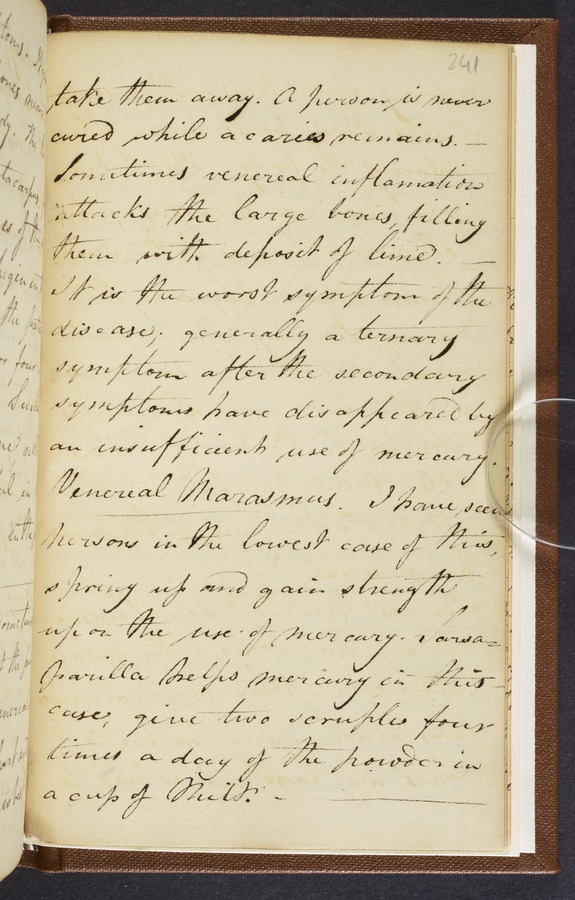 241
take them away. A person is never
cured while a caries remains. —
Sometimes venereal inflamation
attacks the large bones, filling
them with deposit of lime. —
It is the worst symptom of the
disease; generally a ternary
symptom after the secondary
symptoms have disappeared by
an insufficient use of mercury.
Venereal Marasmus. I have seen
persons in the lowest case of this,
spring up and gain strength
upon the use of mercury. Sarsa=
parilla helps mercury in this
case, give two scruples four
times a day of the powder in
a cup of Milk. —